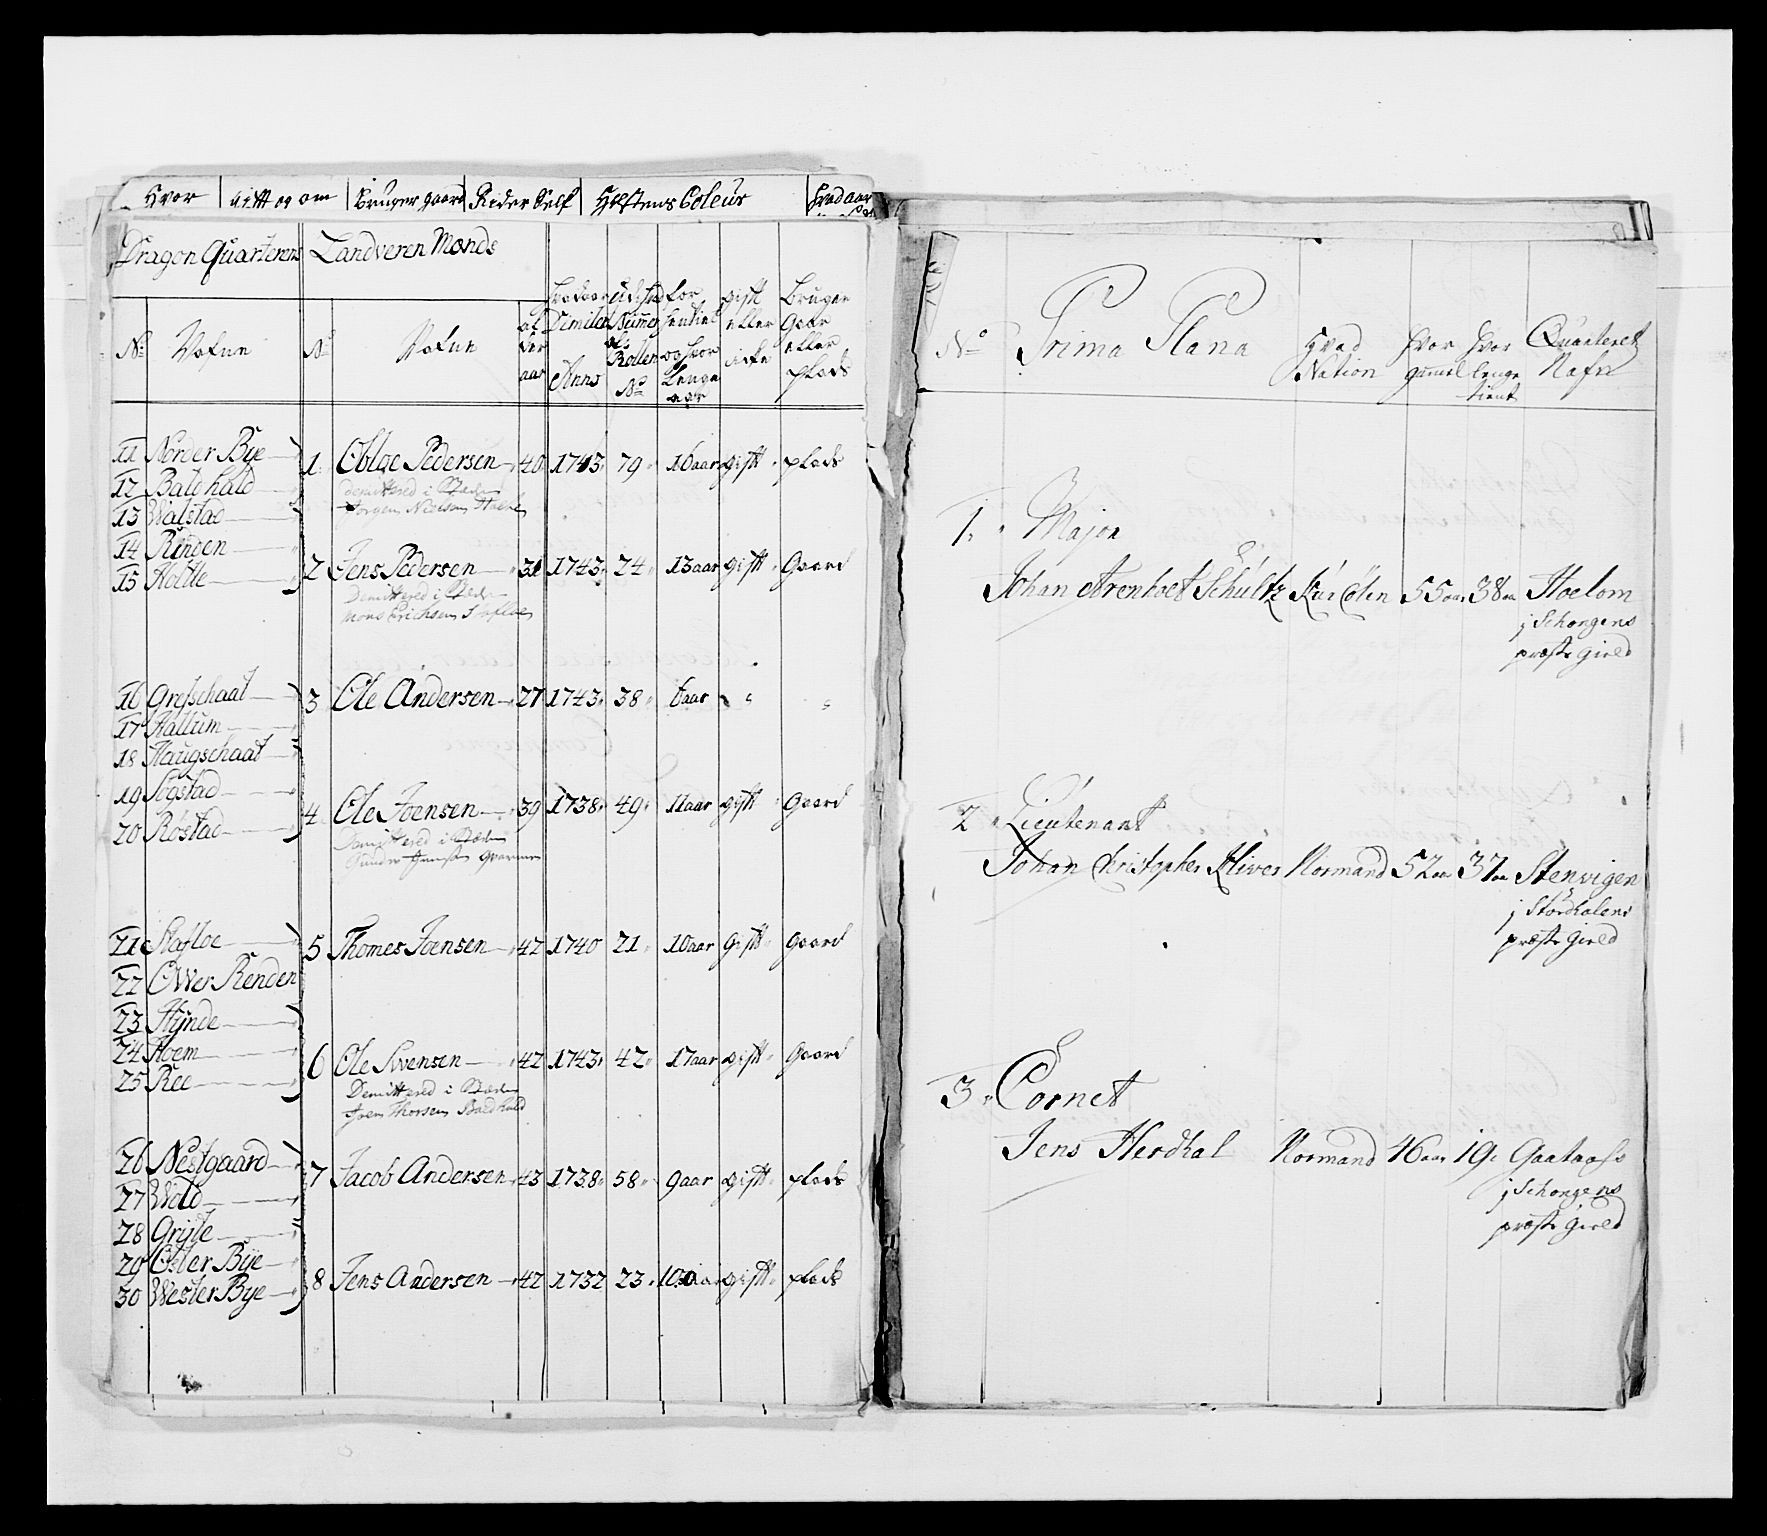 Hvor gift og om Bruger gaard Rider Self Hestens Coleur Hvad aar
Dragon Quarterens Landveren Mands
No: Nafne No Nafne
Anno Rollen No
11 Norder Bye 1 Pedersen 40 1743 79 16 aar gift plads
12 Bald hald demittered i Stæden
13 Walstad Jørgen Nielsen
14 Rinden
15 Holtte 2 Jens Pedersen 31 1743 24 13 aar gift Gaard
Demittered i Stæden
Mons Erichsen
16 Grefschaat 3 Ole Andersen 27 1743 38 6 aar
17 Hallum
18 Haugschaat
19 Sogstad
20 Røstad 4 Ole Joensen 39 1738 49 11 aar gift Gaard
Demittered i Stæden
21 Stafloe 5 Thomes Joensen 42 1740 21 10 aar Gift Gaard
22 Ower Renden
23 Hynde
24 Hoem 6 Ole Swensen 42 1743 42 17 aar gift Gaard
25 Ree
Demittered i Stæden
Joen Thorsen Baldhald
26 Nestgaard 7 Jacob Andersen 43 1738 58 9 aar gift plads
27 Wold
28 Gryte
29 Øster Bye
30 Wester Bye 8 Jens Andersen 42 1732 23 10 aar gift plads
No Prima Plana Hvad Nation Hvor gammel Hvor lenge tient Quarteret Nafn
1. Major
Johan Arenholt Schultz 55 aar 38 aar Hoelom
j Schongens
præste gield
2 Lieutenant
Johan Christopher Klüwer Normand 52 aar 37 aar Stenvigen
j Stordalens
præste gield
3. Cornet
Jens Herdhal Normand 46 aar 19 Gaataass
j Schongens
præste gield